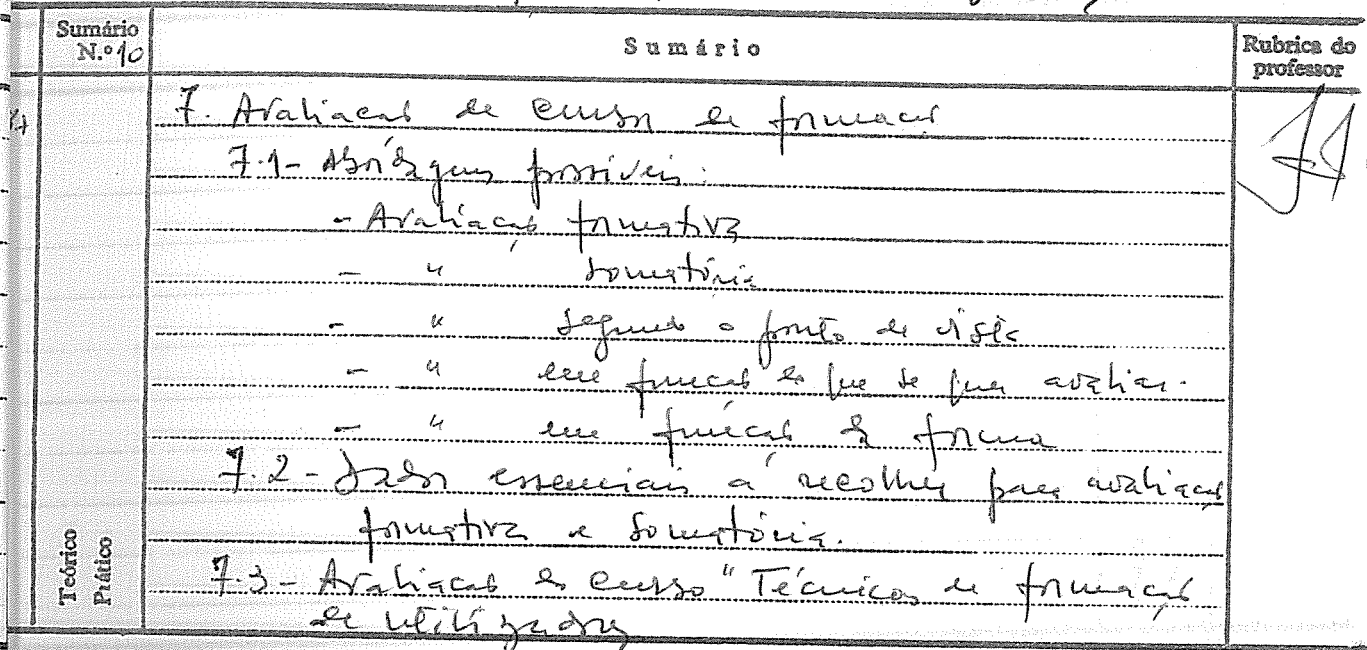 Sumário
N.º 10
Sumário
Rubrica do
professor
7. Avaliação de curso de formação
7.1- Abordagens possíveis:
- Avaliação formativa
- " somatória
- " segundo o ponto de vista
- " em função do que se quer avaliar.
- " em função da forma
7.2- Dados essenciais à recolher para avaliação
formativa e somatória.
7.3- Avaliação do curso "Técnicas de formação
de utilizadores
Teórico
Prático